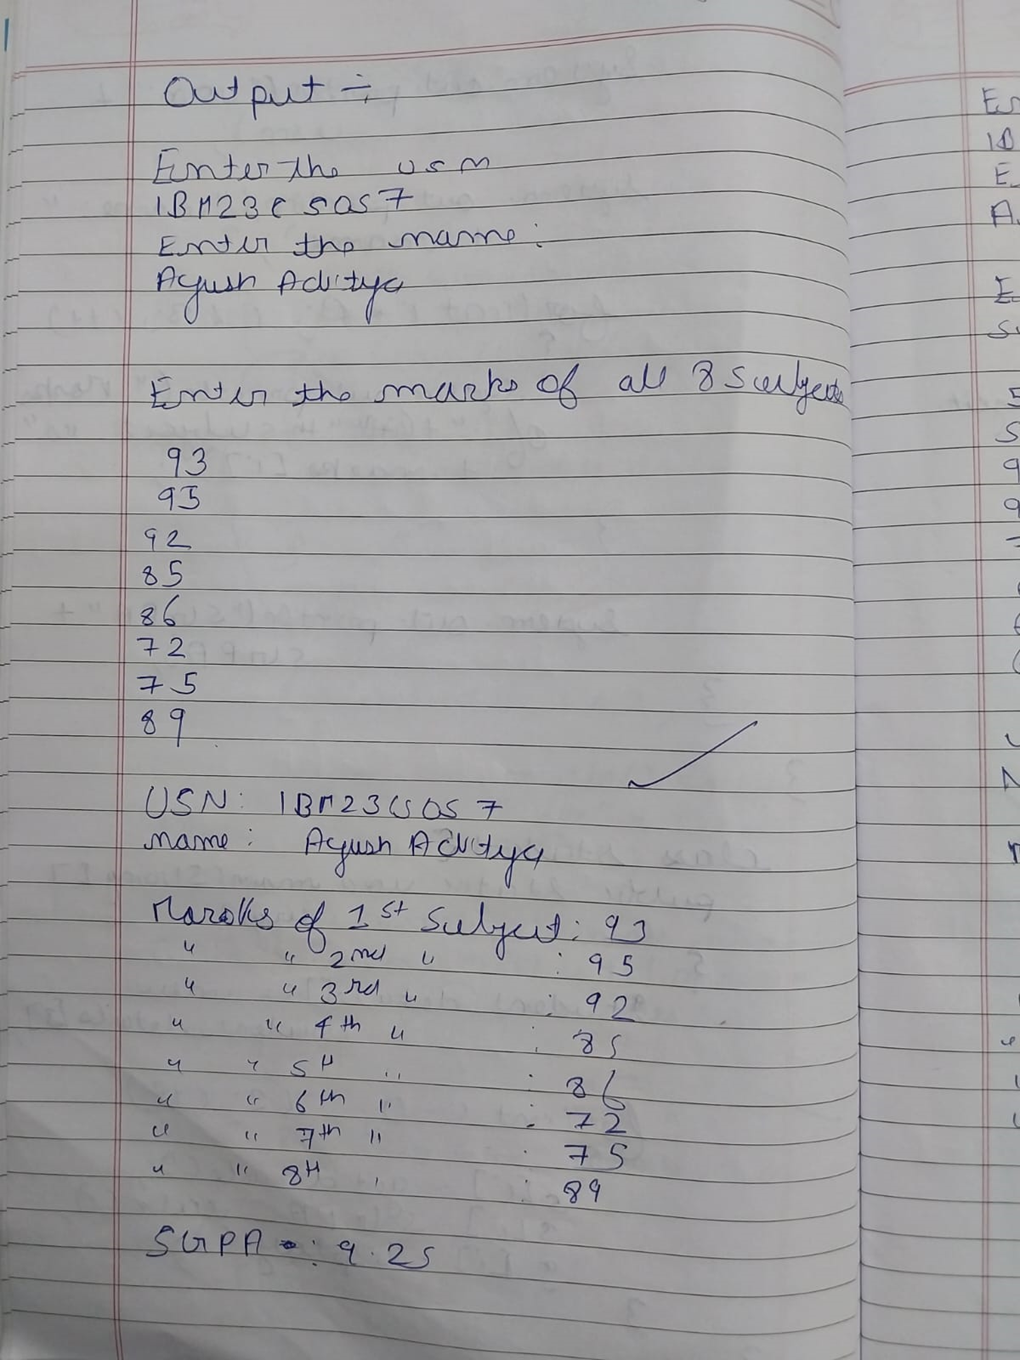 Output :-
Enter the USN
1BM23CS057
Enter the name:
Ayush Aditya
Enter the marks of all 8 Subjects
93
95
92
85
86
72
75
89
USN: 1BM23CS057
name: Ayush Aditya
Marks of 1st Subject: 93
" " 2nd " : 95
" " 3rd " : 92
" " 4th " : 85
" " 5th " : 86
" " 6th " : 72
" " 7th " : 75
" " 8th " : 89
SGPA : 9.25